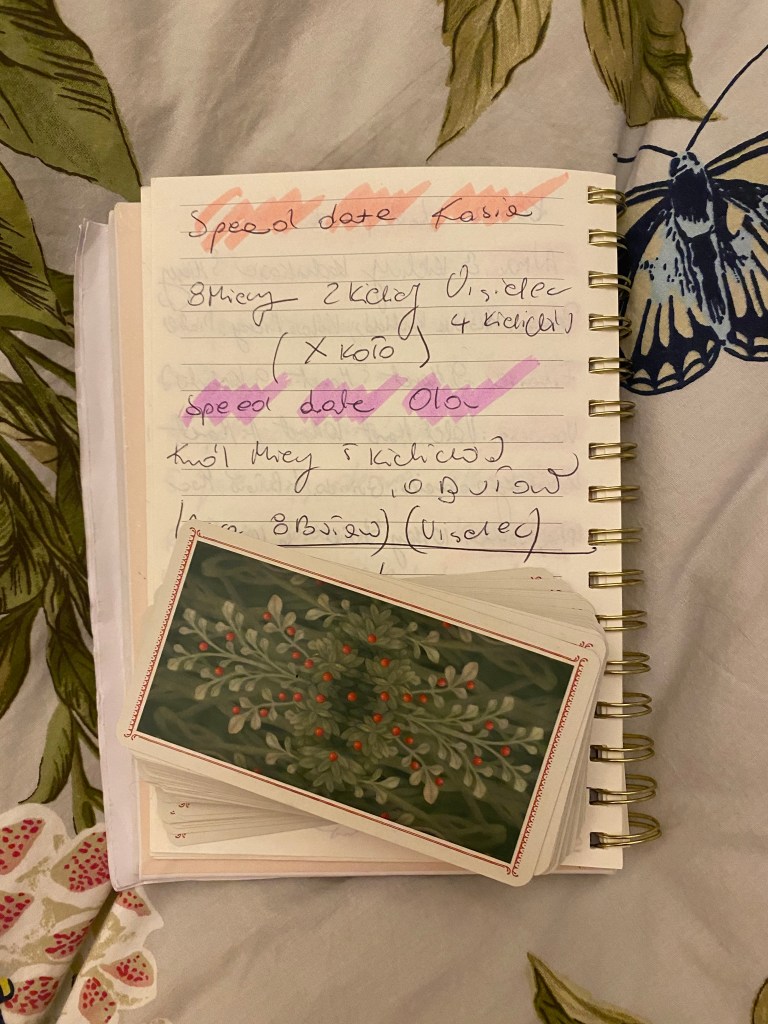 Speed date Kasia
8 Mieczy 2 Kielichy Wisielec
4 Kielichów
(X Koło)
Speed date Ola
Król Mieczy
10 Buław
8 Buław) (Wisielec)